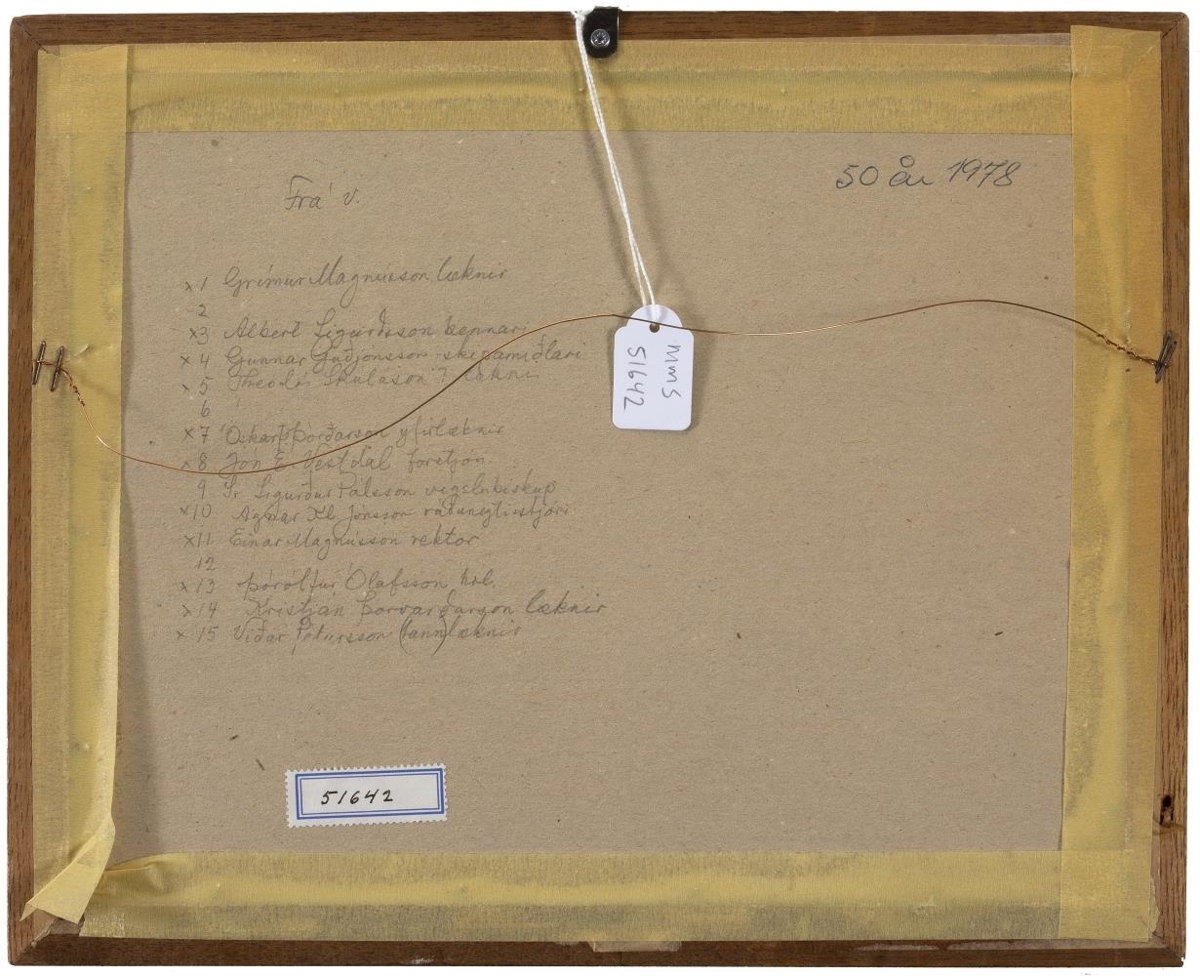 50 år 1978
Frá v.
x 1 Grímur Magnússon læknir
2
x3 Albert Sigurðsson kennari
x 4 Gunnar Guðjónsson skipamiðlari
x 5 Theodór Skúlason ? lækni
6
x7 Óskar Þórðarson yfirlæknir
x 8 Jón E. Vestdal forstjóri
9 Sr Sigurður Pálsson vígslubiskup
x10 Agnar Kl Jónsson ráðuneytisstjóri
x11 Einar Magnússon rektor
12
x 13 Þórólfur Ólafsson hrl.
x 14 Kristján Þorvarðarson læknir
x 15 Viðar Pétursson (tann)læknir
MMS
51642
51642